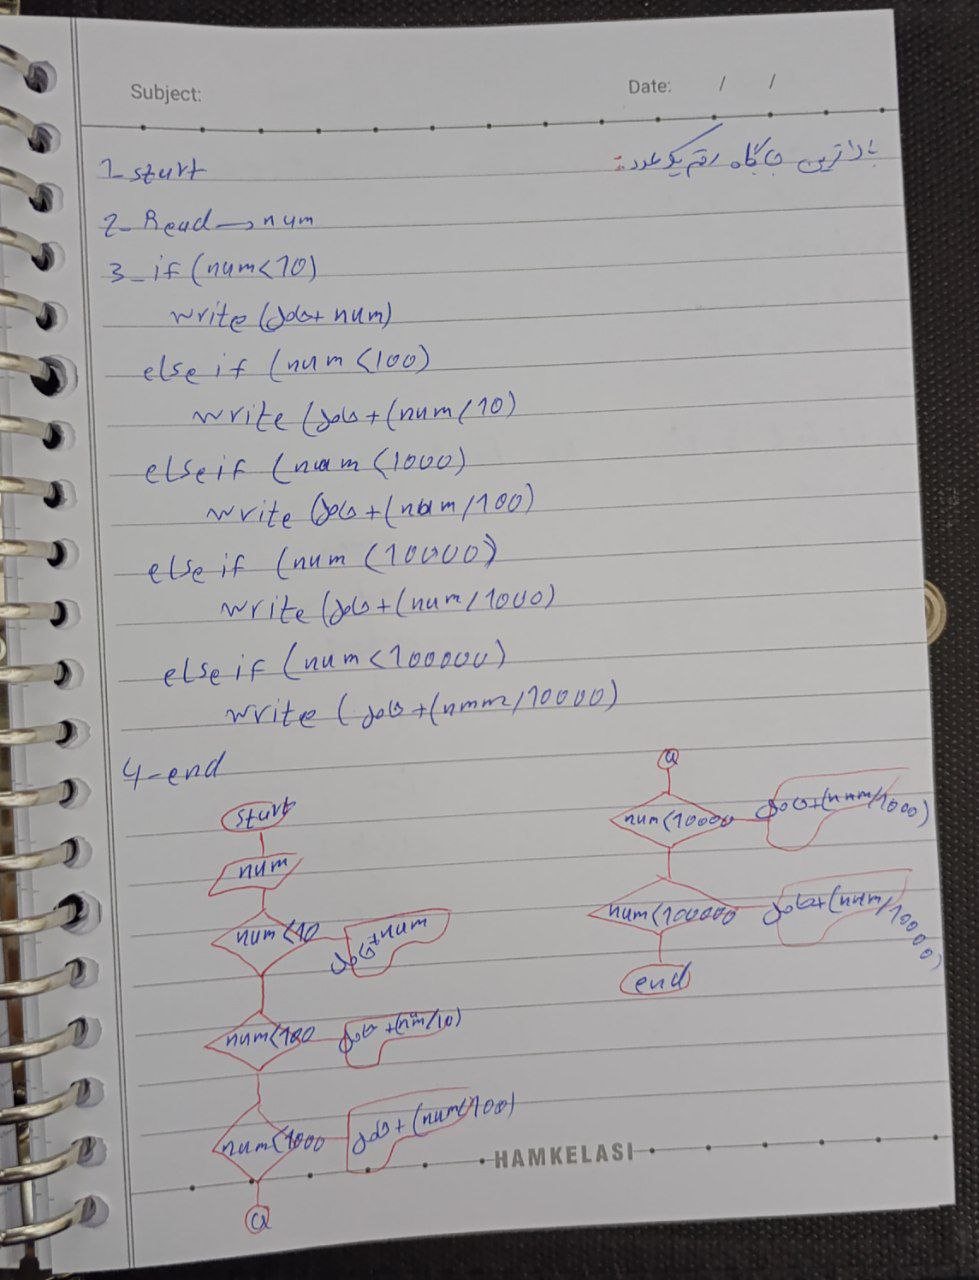 Subject:
Date: / /
بالاترین جایگاه رقم یک عدد:
1_start
2_Read→num
3_if (num<10)
write ( + num)
else if (num <100)
write ( + (num/10)
else if (num <1000)
write ( + (num/100)
else if (num <10000)
write ( + (num/1000)
else if (num <100000)
write ( + (num/10000)
4-end
start
num
num<10
+num
num<100
+(num/10)
num<1000
+ (num/100)
a
a
num<10000
+(num/1000)
num<100000
+(num/10000)
end
HAMKELASI